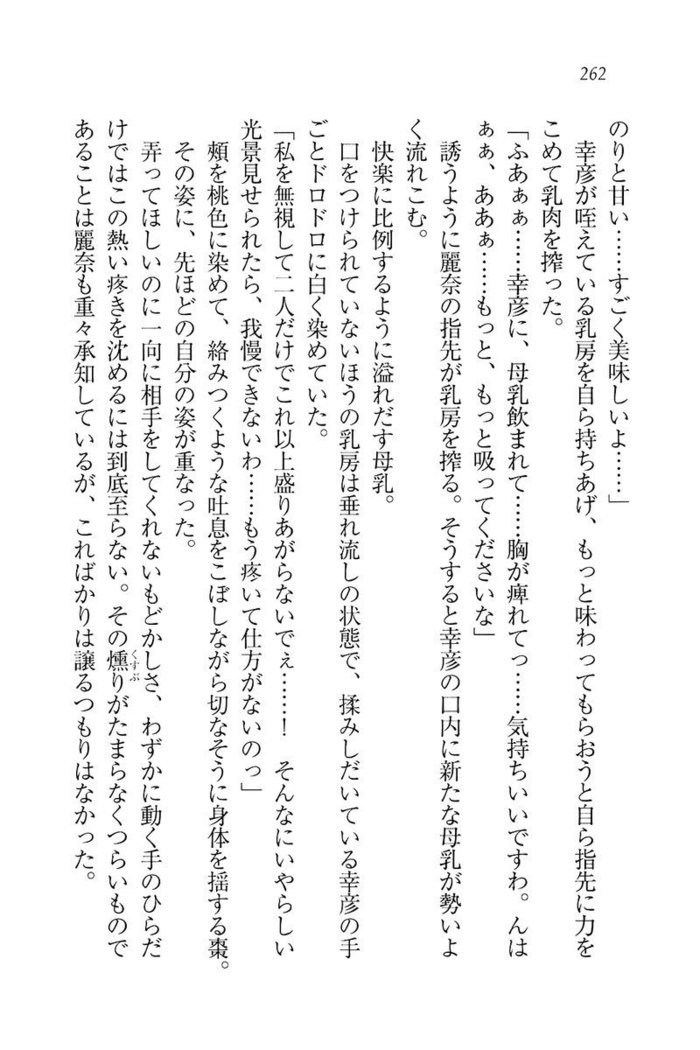 262
のりと甘い……すごく美味しいよ……」
　幸彦が咥えている乳房を自ら持ちあげ、もっと味わってもらおうと自ら指先に力を
こめて乳肉を搾った。
「ふあぁぁ……幸彦に、母乳飲まれて……胸が痺れてっ……気持ちいいですわ。んは
ぁぁ、ああぁ……もっと、もっと吸ってくださいな」
　誘うように麗奈の指先が乳房を搾る。そうすると幸彦の口内に新たな母乳が勢いよ
く流れこむ。
　快楽に比例するように溢れだす母乳。
　口をつけられていないほうの乳房は垂れ流しの状態で、揉みしだいている幸彦の手
ごとドロドロに白く染めていた。
「私を無視して二人だけでこれ以上盛りあがらないでぇ……！　そんなにいやらしい
光景見せられたら、我慢できないわ……もう疼いて仕方がないのっ」
　頬を桃色に染めて、絡みつくような吐息をこぼしながら切なそうに身体を揺する棗。
　その姿に、先ほどの自分の姿が重なった。
　弄ってほしいのに一向に相手をしてくれないもどかしさ、わずかに動く手のひらだ
けではこの熱い疼きを沈めるには到底至らない。その燻りがたまらなくつらいもので
くすぶ
あることは麗奈も重々承知しているが、こればかりは譲るつもりはなかった。